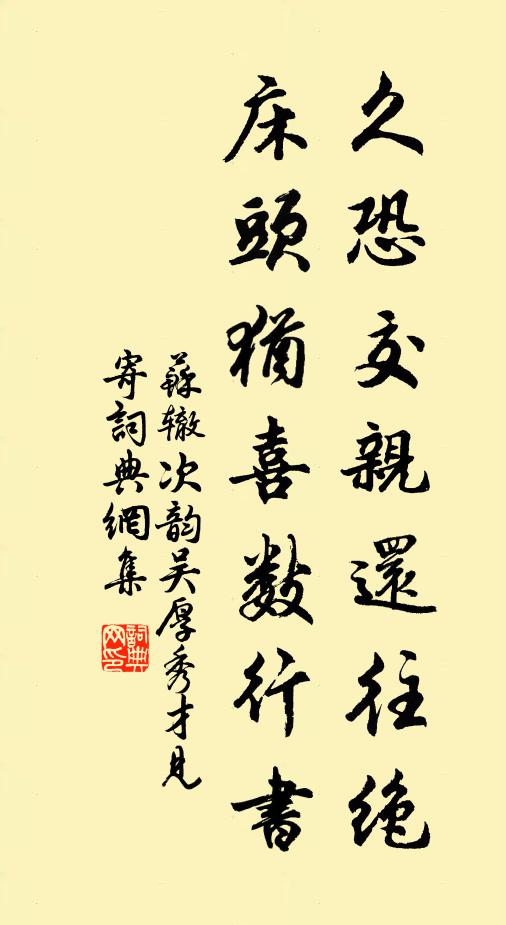 久恐交親還往絶
床頭猶喜數行書
蘇辙次韵吴厚秀才見
寄詞典網集
詞典
网印